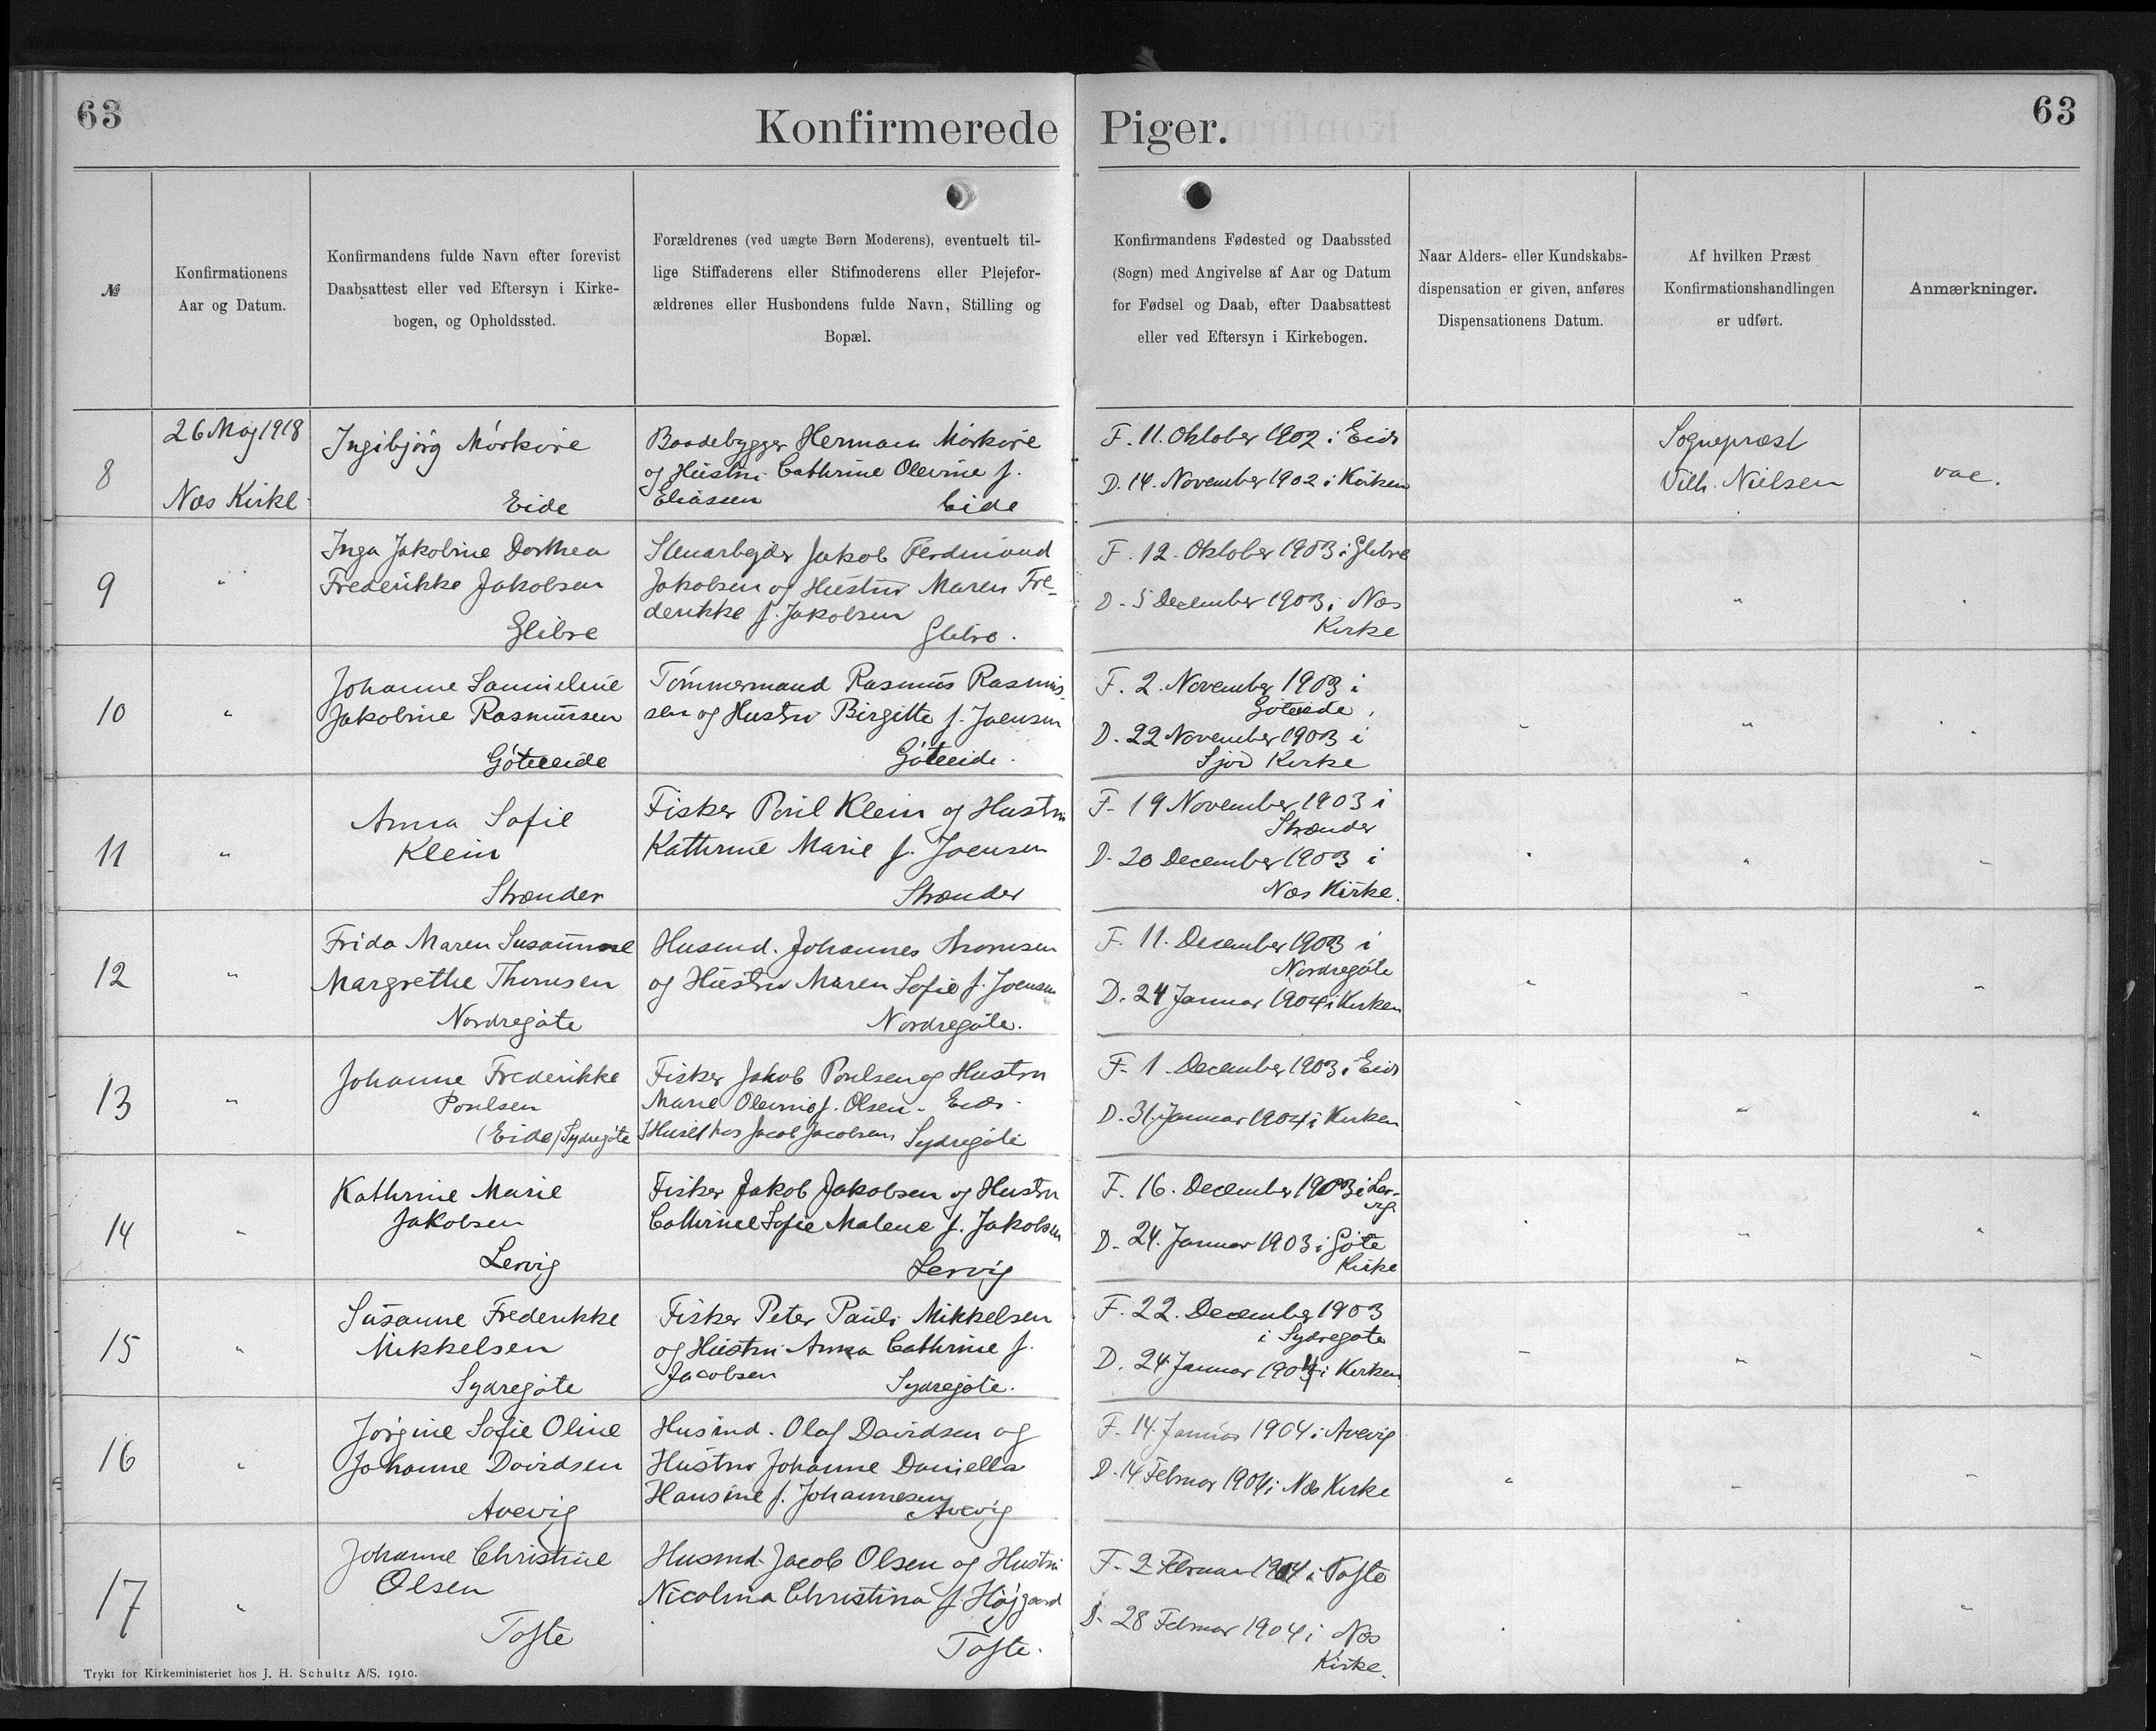 63
Konfirmerede Piger.
63
№
Konfirmationens
Aar og Datum.
Konfirmandens fulde Navn efter forevist
Daabsattest eller ved Eftersyn i Kirke-
bogen, og Opholdssted.
Forældrenes (ved uægte Børn Moderens), eventuelt til-
lige Stiffaderens eller Stifmoderens eller Plejefor-
ældrenes eller Husbondens fulde Navn, Stilling og
Bopæl.
Konfirmandens Fødested og Daabssted
(Sogn) med Angivelse af Aar og Datum
for Fødsel og Daab, efter Daabsattest
eller ved Eftersyn i Kirkebogen.
Naar Alders- eller Kundskabs-
dispensation er given, anføres
Dispensationens Datum.
Af hvilken Præst
Konfirmationshandlingen
er udført.
Anmærkninger.
8
26 Maj 1918
Næs Kirke
Ingibjörg Mörköre
Eide
Baadebygger Hermann Mörköre
og Hustru Cathrine Olevine f.
Eliasen
Eide
F. 11. Oktober 1902 i Eide
D. 14. November 1902 i Kirken
Sognepræst
Vilh. Nielsen
vac.
9
"
Inga Jakobine Dorthea
Frederikke Jakobsen
Glibre
Stenarbejder Jakob Ferdinand
Jakobsen og Hustru Maren Fre-
derikke f. Jakobsen
Glibre.
F. 12. Oktober 1903 i Glibre
D. 5 December 1903 i Næs
Kirke
"
10
"
Johanne Samueline
Jakobine Rasmussen
Göteeide
Tömmermand Rasmus Rasmus-
sen og Hustru Birgitte f. Joensen
Göteeide.
F. 2. November 1903 i
Göteeide
D. 22 November 1903 i
Sjov Kirke
"
11
"
Anna Sofie
Klein
Strænder
Fisker Poul Klein og Hustru
Kathrine Marie f. Joensen
Strænder
F. 19 November 1903 i
Strænder
D. 20 December 1903 i
Næs Kirke.
"
12
"
Frida Maren Susanne
Margrethe Thomsen
Nordregöte
Husmd. Johannes Thomsen
og Hustru Maren Sofie f. Joensen
Nordregöte.
F. 11. December 1903 i
Nordregöte
D. 24 Januar 1904 i Kirken
"
13
"
Johanne Frederikke
Poulsen
(Eide) Sydregöte
Fisker Jakob Poulsen og Hustru
Marie Olevine f. Olsen. Eide.
I Huset hos Jacob Jacobsen Sydregöte
F. 1 December 1903 i Eide
D. 31. Januar 1904 i Kirken
"
14
"
Kathrine Marie
Jakobsen
Lervig
Fisker Jakob Jakobsen og Hustru
Cathrine Sofie Malene f. Jakobsen
Lervig
F. 16. December 1903 i Ler-
vig
D. 24. Januar 1903 i Göte
Kirke
"
15
"
Susanne Frederikke
Mikkelsen
Sydregöte
Fisker Peter Pauli Mikkelsen
og Hustru Anna Cathrine f.
Jacobsen
Sydregöte.
F. 22. December 1903
i Sydregöte
D. 24 Januar 1904 i Kirken
"
16
"
Jörgine Sofie Oline
Johanne Davidsen
Avevig
Husmd. Olaf Davidsen og
Hustru Johanne Daniella
Hansine f. Johannesen
Avevig
F. 14 Januar 1904 i Avevig
D. 14 Februar 1904 i Næs Kirke
"
17
"
Johanne Christine
Olsen
Tofte
Husmd. Jacob Olsen og Hustru
Nicolina Christina f. Höjgaard
Tofte.
F. 2 Februar 1904 i Tofte
D. 28 Februar 1904 i Næs
Kirke.
"
Trykt for Kirkeministeriet hos J. H. Schultz A/S. 1910.